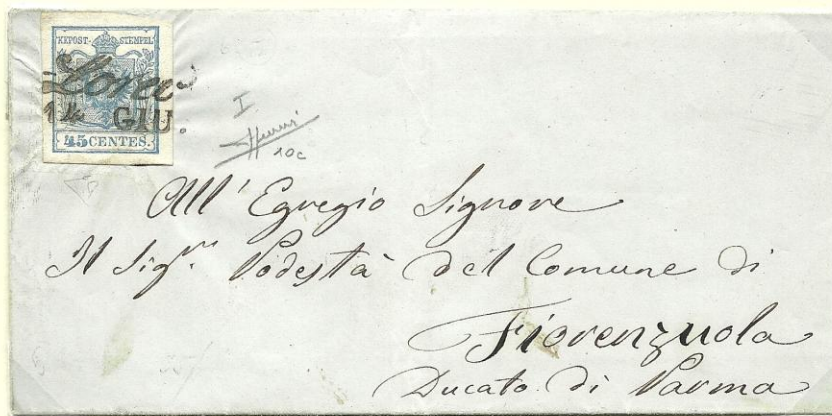 KKPOST-STEMPEL
14 GIU.
45 CENTES.
I
10c
All' Egregio Signore
Il Sig.re Podestà del Comune di
Fiorenzuola
Ducato di Parma